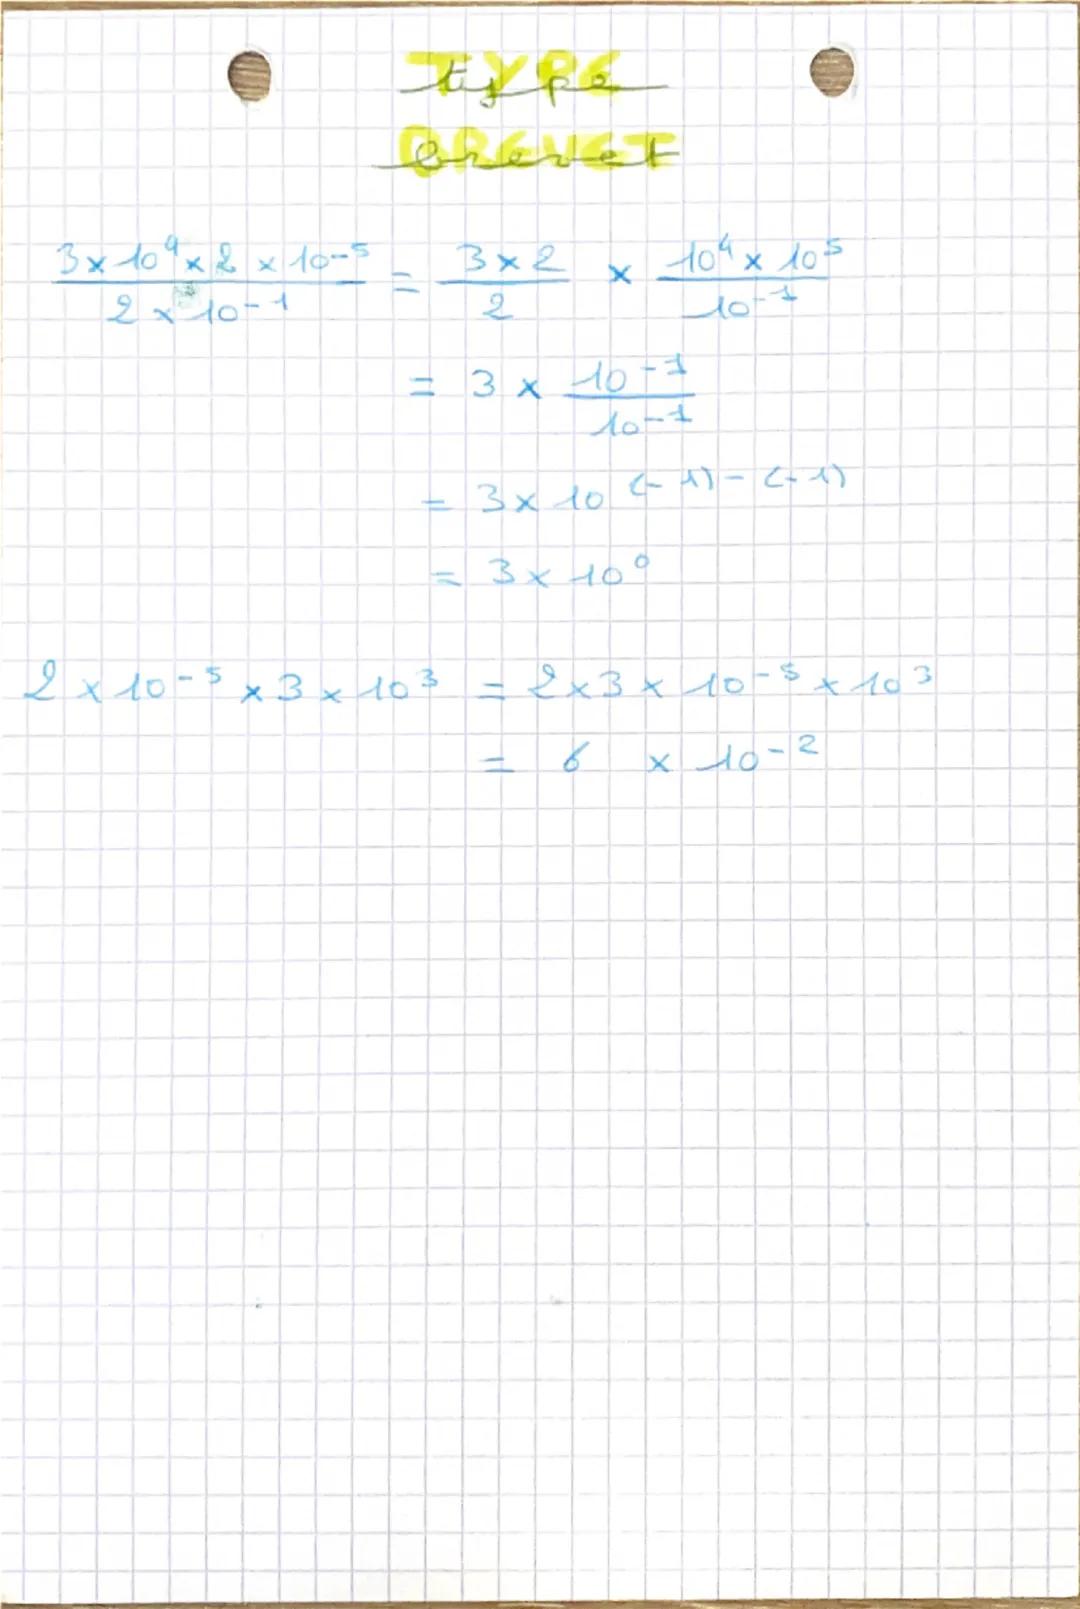 type
brevet
3 × 10⁴ × 2 × 10⁻⁵ / 2 × 10⁻¹ = 3 × 2 / 2 × 10⁴ × 10⁵ / 10⁻¹
= 3 × 10⁻¹ / 10⁻¹
= 3 × 10⁽⁻¹⁾⁻⁽⁻¹⁾
= 3 × 10⁰
2 × 10⁻⁵ × 3 × 10³ = 2 × 3 × 10⁻⁵ × 10³
= 6 × 10⁻²